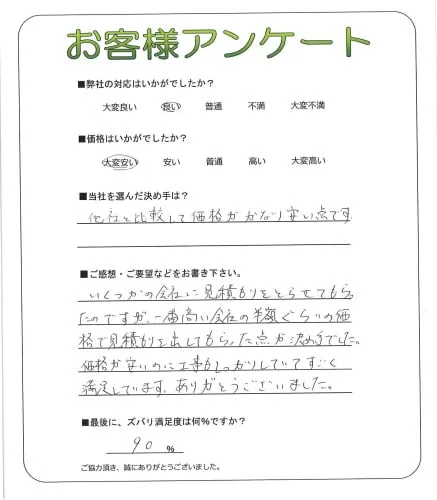 お客様アンケート
■弊社の対応はいかがでしたか？
大変良い　良い　普通　不満　大変不満
■価格はいかがでしたか？
大変安い　安い　普通　高い　大変高い
■当社を選んだ決め手は？
他社と比較して価格がかなり安い点です
■ご感想・ご要望などをお書き下さい。
いくつかの会社に見積もりをとらせてもらっ
たのですが、一番高い会社の半額ぐらいの価
格で見積もりを出してもらった点が決め手でした。
価格が安いのに工事もしっかりしていてすごく
満足しています。ありがとうございました。
■最後に、ズバリ満足度は何%ですか？
90 %
ご協力頂き、誠にありがとうございました。